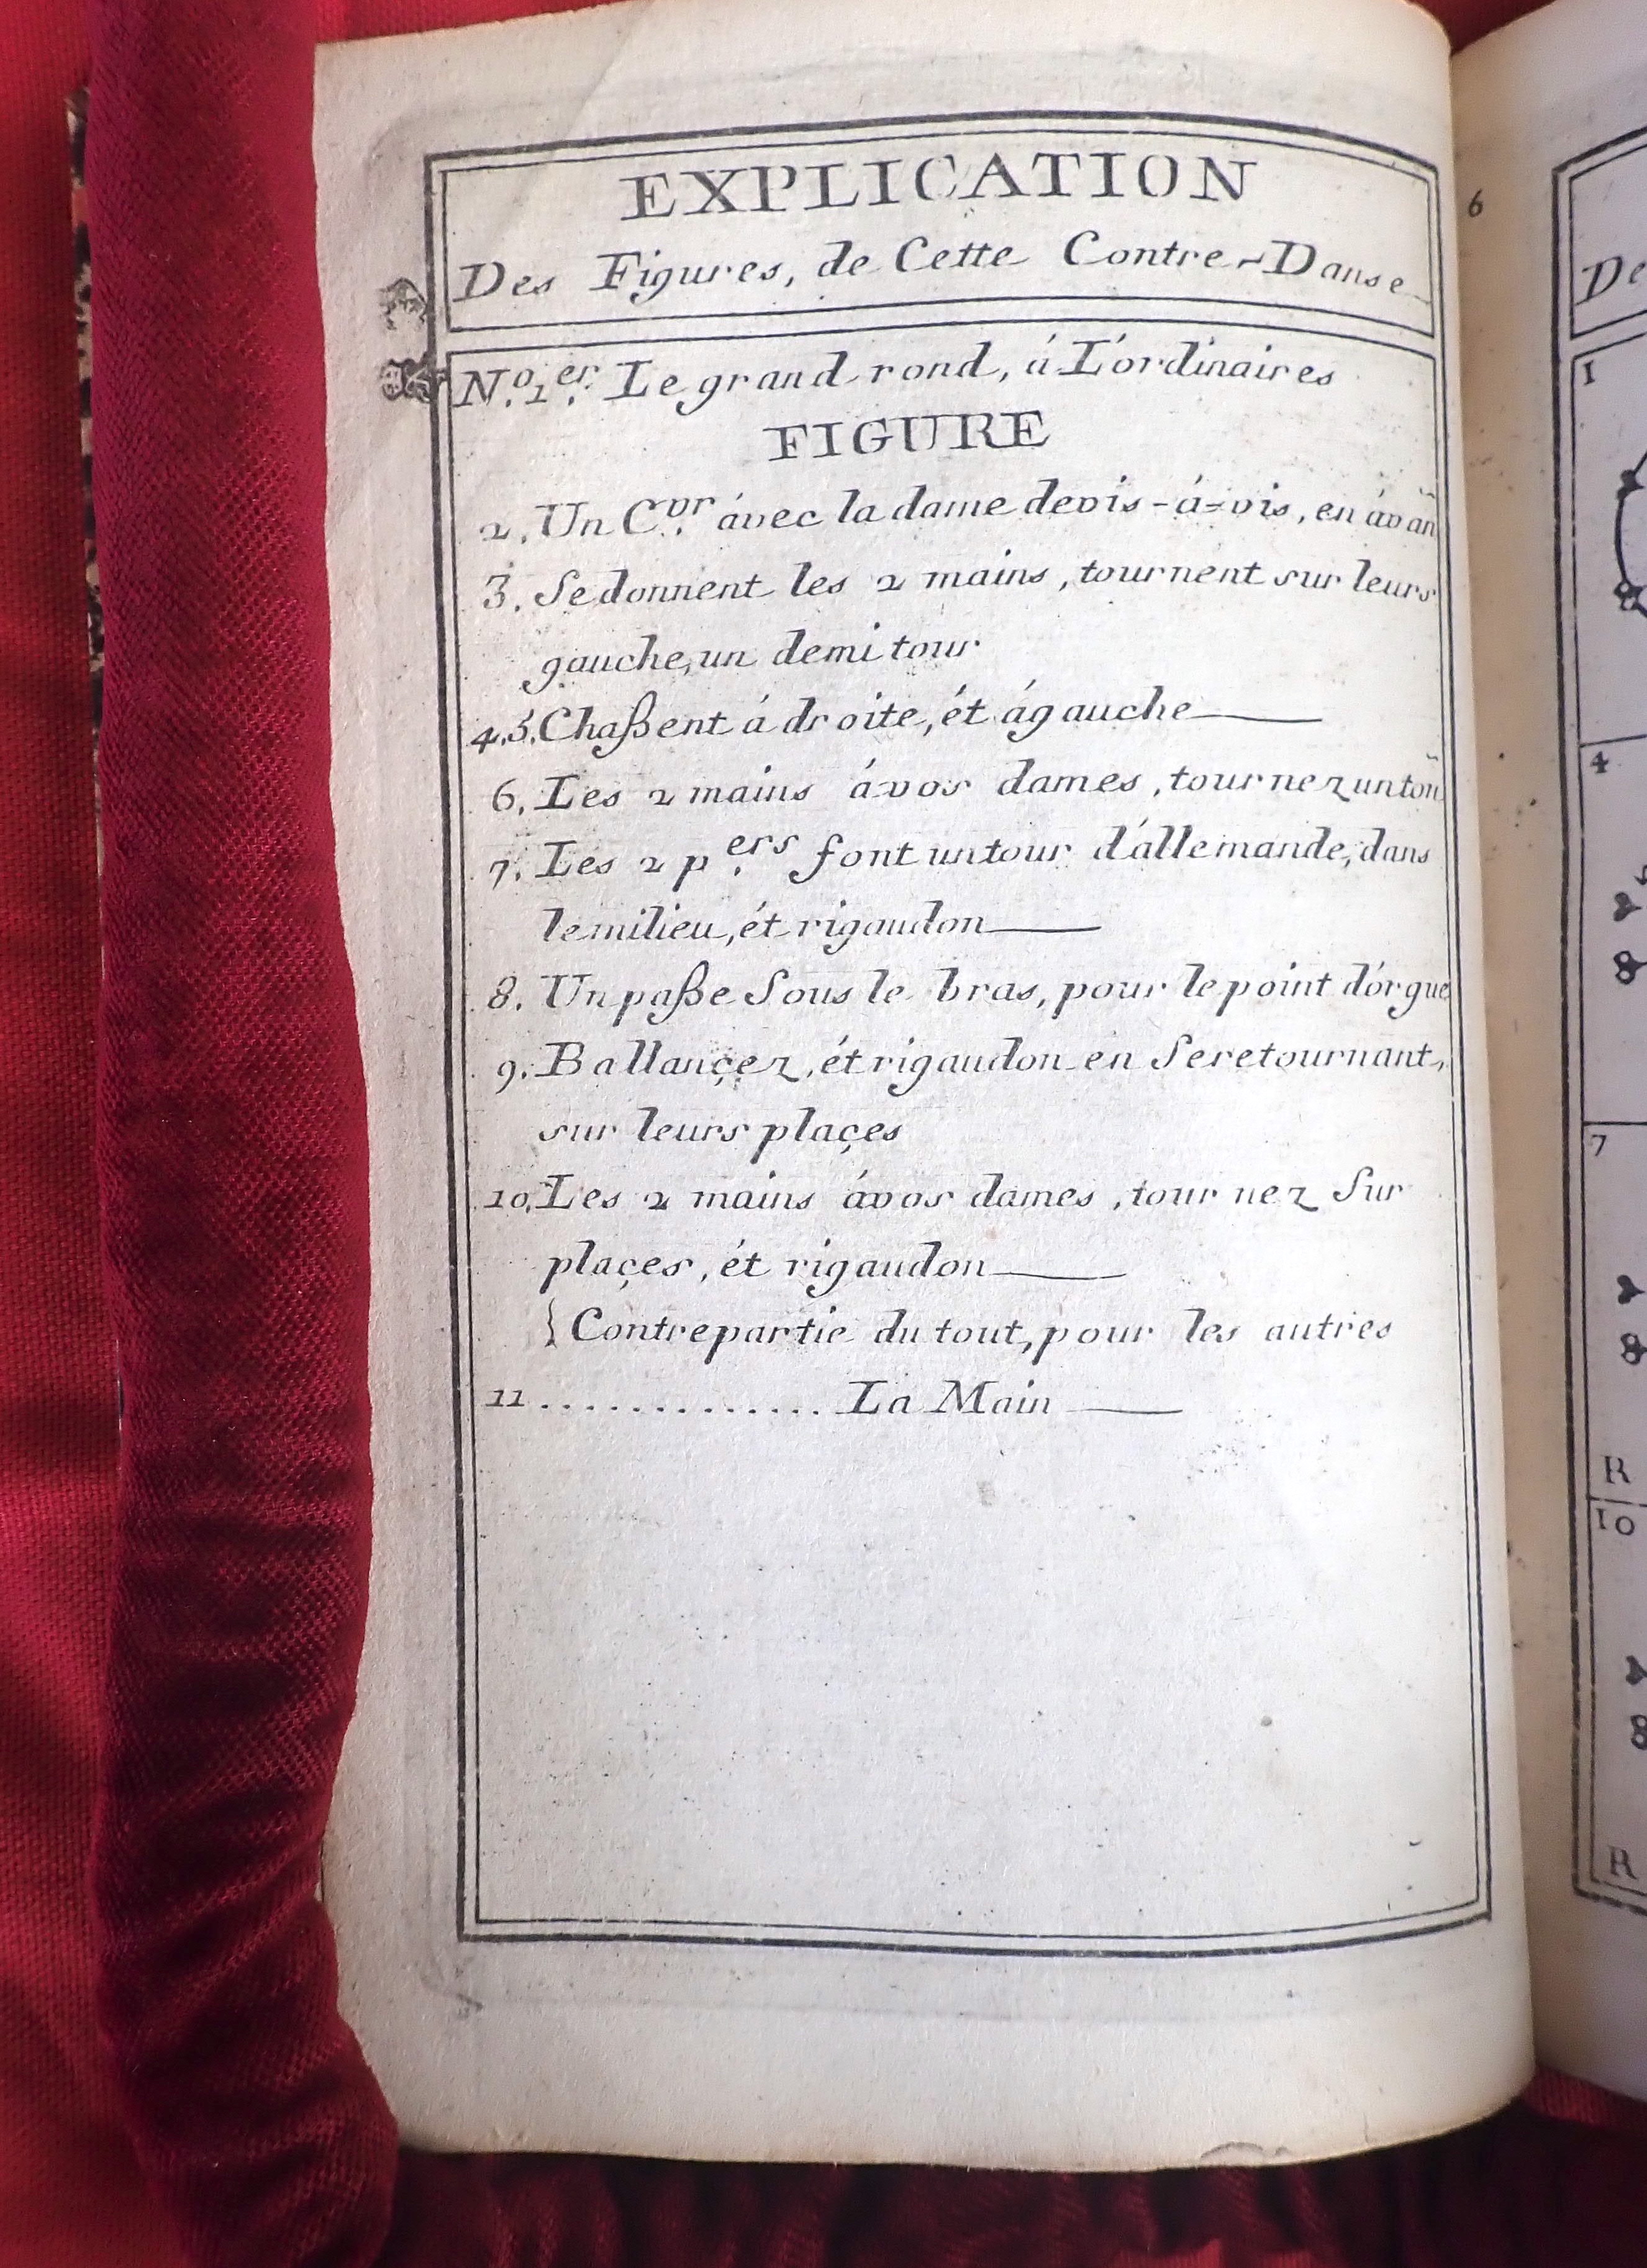 EXPLICATION
Des Figures, de Cette Contre-Danse
N.º 1.er Le grand rond, á L'ordinaires
FIGURE
2. Un C.vr ávec la dame devis-á=vis, en ávan̄
3. Se donnent les 2 mains, tournent sur leurs
gauche, un demi tour
4.5. Chaßent á droite, ét ágauche
6. Les 2 mains ávos dames, tournez un toũ
7. Les 2 p.ers font un tour d'állemande, dans
le milieu, ét rigaudon
8. Un paße Sous le bras, pour le point d'órgue
9. Ballançez, ét rigaudon en Se retournant,
sur leurs plaçes
10. Les 2 mains ávos dames, tournez Sur
plaçes, ét rigaudon
{Contrepartie du tout, pour les autres
11 ............. La Main
6
De
1
4
7
R
10
R